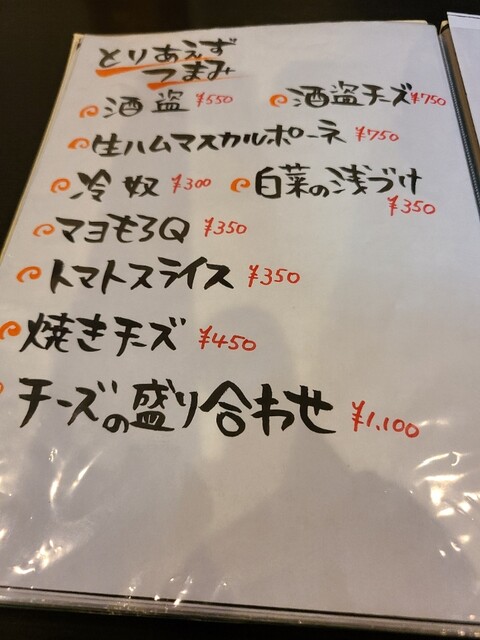 とりあえず
つまみ
酒盗 ¥550 酒盗チーズ ¥750
生ハムマスカルポーネ ¥750
冷奴 ¥300 白菜の浅づけ ¥350
マヨもろQ ¥350
トマトスライス ¥350
焼きチーズ ¥450
チーズの盛り合わせ ¥1,100